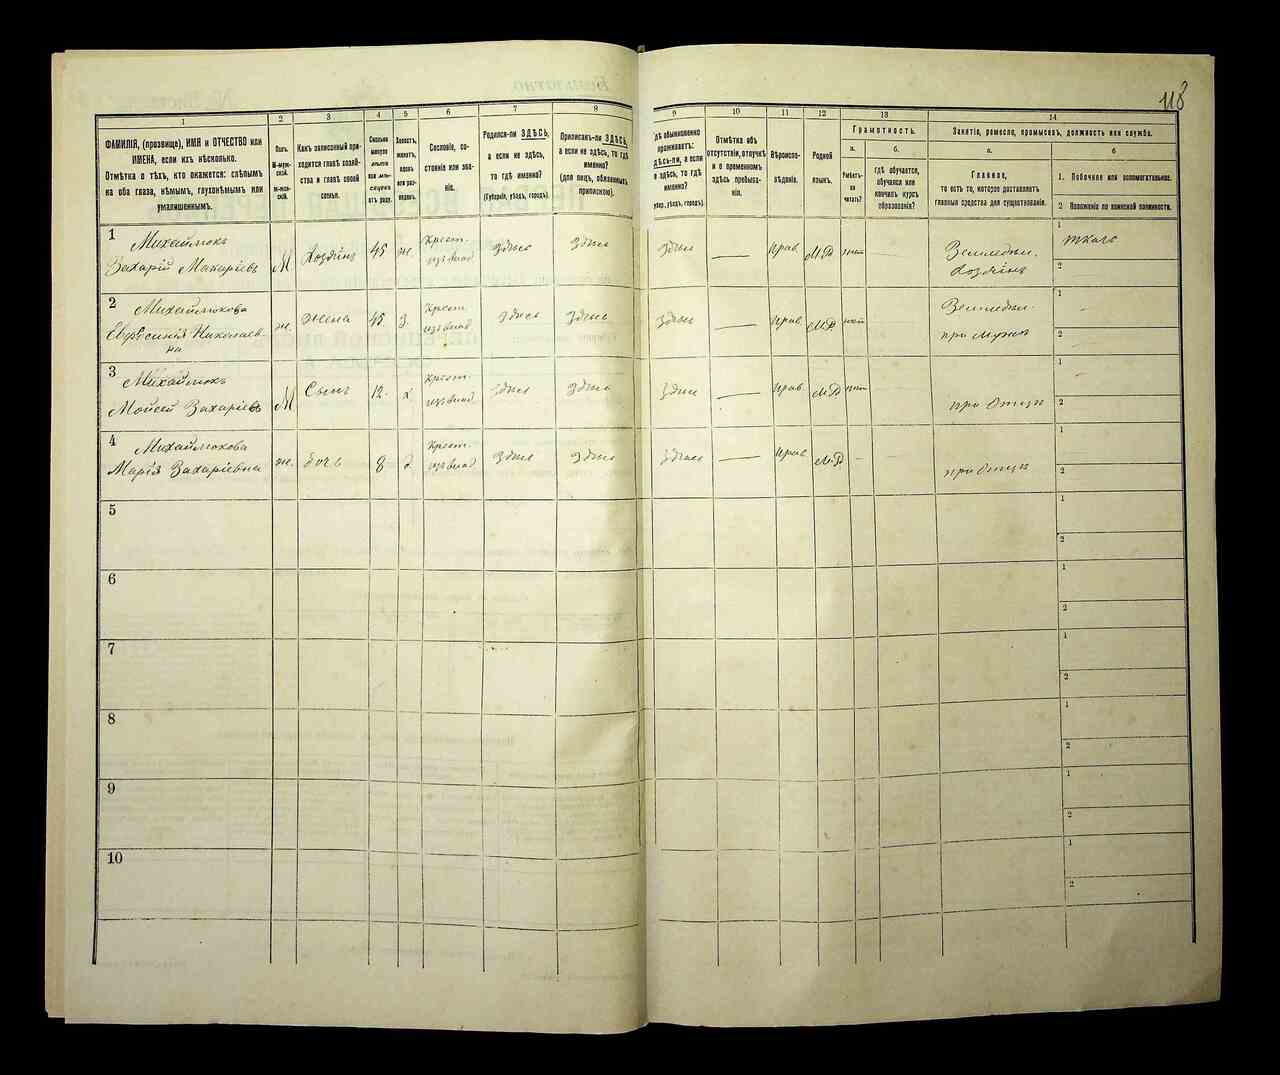 118
1
2
3
4
5
6
7
8
9
10
11
12
13
14
ФАМИЛІЯ, (прозвище), ИМЯ и ОТЧЕСТВО или
ИМЕНА, если ихъ нѣсколько.
Отмѣтка о тѣхъ, кто окажется: слѣпымъ
на оба глаза, нѣмымъ, глухонѣмымъ или
умалишеннымъ.
Полъ.
М-муж-
ской.
ж-жен-
скій.
Какъ записанный при-
ходится главѣ хозяй-
ства и главѣ своей
семьи.
Сколько
минуло
лѣтъ
или мѣ-
сяцевъ
отъ роду.
Холостъ,
женатъ,
вдовъ
или раз-
веденъ.
Сословіе, со-
стояніе или зва-
ніе.
Родился-ли ЗДѢСЬ,
а если не здѣсь,
то гдѣ именно?
(Губернія, уѣздъ, городъ).
Приписанъ-ли ЗДѢСЬ,
а если не здѣсь, то гдѣ
именно?
(для лицъ, обязанныхъ
припискою).
дѣ обыкновенно
проживаетъ:
ДѢСЬ-ли, а если
е здѣсь, то гдѣ
именно?
убер., уѣздъ, городъ).
Отмѣтка объ
отсутствіи, отлучкѣ
и о временномъ
здѣсь пребыва-
ніи.
Вѣроиспо-
вѣданіе.
Родной
языкъ.
Грамотность.
а.
Умѣетъ-
ли
читать?
б.
гдѣ обучается,
обучался или
кончилъ курсъ
образованія?
Занятіе, ремесло, промыселъ, должность или служба.
а.
Главное,
то есть то, которое доставляетъ
главныя средства для существованія.
б
1. Побочное или вспомогательное.
2 Положеніе по воинской повинности.
1
Михаймюкъ
Захарій Макаріевъ
М
Хозяинъ
45
ж.
Крест.
изъ влад
Здѣсь
Здѣсь
Здѣсь
—
Прав
М.Р
нѣт
Земледѣл.
Хозяинъ
1
ткачъ
2
2
Михаймюкова
Евфросинія Николаев-
на
ж.
Жена
45
З.
Крест.
изъ влад
Здѣсь
Здѣсь
Здѣсь
—
Прав
М.Р
нѣт
Земледѣл.
при мужѣ
1
2
3
Михаймюкъ
Мойсей Захаріевъ
М
Сынъ
12.
х
Крест.
изъ влад
Здѣсь
Здѣсь
Здѣсь
—
Прав
М.Р
нѣт
при Отцѣ
1
2
4
Михаймюкова
Марія Захаріевна
ж.
дочь
8
д
Крест.
изъ влад
Здѣсь
Здѣсь
Здѣсь
—
Прав
М.Р
при Отцѣ
1
2
5
1
2
6
1
2
7
1
2
8
1
2
9
1
2
10
1
2